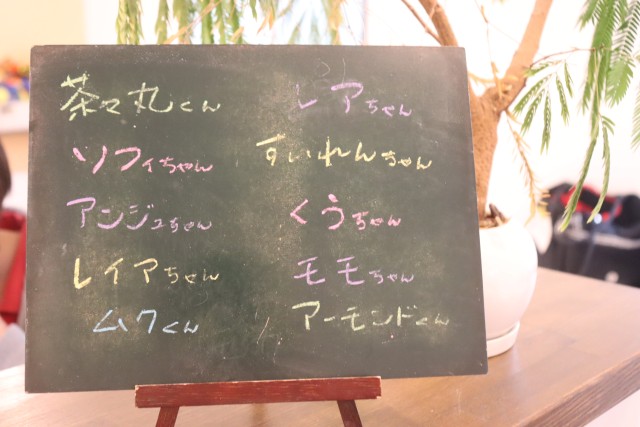 茶々丸くん
レアちゃん
ソフィちゃん
すいれんちゃん
アンジュちゃん
くうちゃん
レイアちゃん
モモちゃん
ムクくん
アーモンドくん